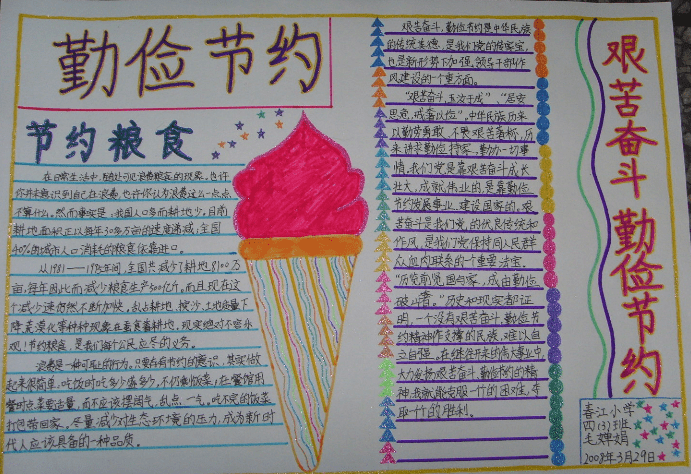 勤俭节约
节约粮食
在日常生活中,随处可见浪费粮食的现象。也许
你并未意识到自己在浪费,也许你认为浪费这么一点点
不算什么。然而事实是,我国人口多而耕地少,目前
耕地面积正以每年30多万亩的速度递减,全国
40%的城市人口消耗的粮食依靠进口。
从1981——1995年间,全国共减少了耕地8100万
亩,每年因此而减少粮食生产500亿斤。而且现在这
个减少速仍然不断加快,乱占耕地
观!节约粮食,是我们每个公民应尽的义务。
浪费是一种可耻的行为。只要存有节约的意识,其实做
起来很简单:吃饭时吃多少盛多少,不仍剩饭菜;在餐馆用
餐时点菜要适量,而不应该摆阔气,乱点一气。吃不完的饭菜
打包带回家。尽量减少对生态环境的压力,成为新时
代人应该具备的一种品质。
艰苦奋斗,勤俭节约是中华民族
的传统美德,是我们党的传家宝,
也是新形势下加强领导干部作
风建设的一个重方面。
“艰苦奋斗,玉汝于成”、“居安
思危,戒奢以俭”。中华民族历来
以勤劳勇敢、不畏艰苦著称,历
来讲求勤俭持家,勤力一切事
情。我们党是靠艰苦奋斗成长
壮大,成就伟业的,是靠勤俭
节约发展事业,建设国家的。艰
苦奋斗是我们党的优良传统和
作风,是我们党保持同人民群
众血肉联系的一个重要法宝。
“历览前贤国与家,成由勤俭
破由奢。”历史和现实都证
明,一个没有艰苦奋斗、勤俭节
约精神作支撑的民族,难以自
立自强。在继往开来的伟大事业中,
大力发扬艰苦奋斗勤俭节约的精
神我就能克服一个的困难,夺
取一个的胜利。
艰苦奋斗 勤俭节约
春江小学
四(3)班
毛婵娟
2008年3月29日